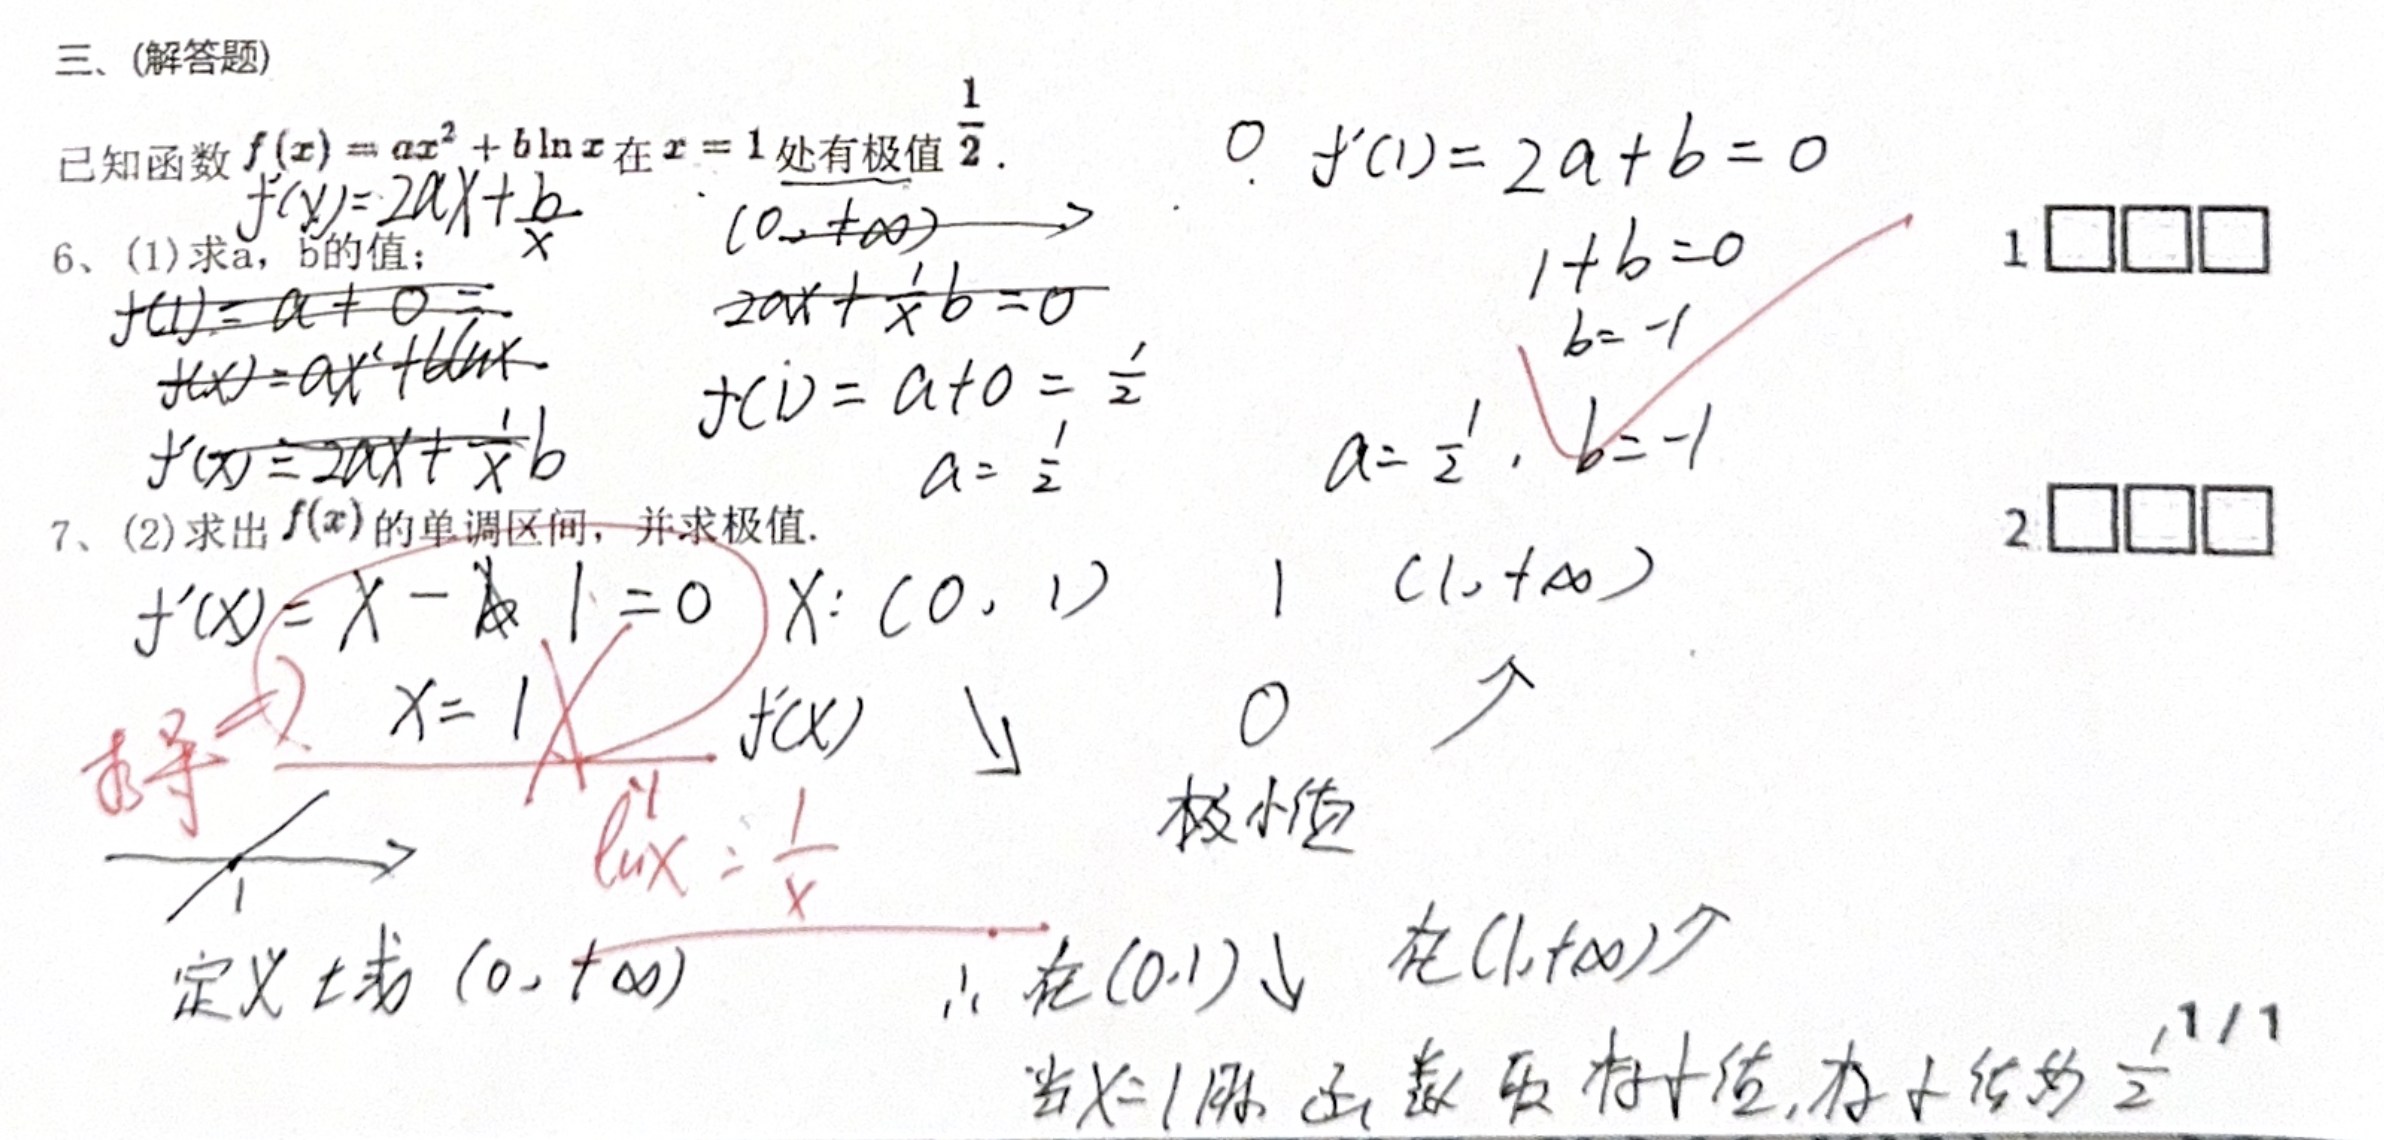 三、(解答题)
已知函数 f(x) = ax² + b ln x 在 x = 1 处有极值 1/2 .
f'(x) = 2ax + b/x
(0, +∞)
6、(1)求a，b的值；
f(1) = a + 0 =
f(x) = ax² + blnx
f'(x) = 2ax + 1/x b
2ax + 1/x b = 0
f(1) = a + 0 = 1/2
a = 1/2
f'(1) = 2a + b = 0
1 + b = 0
b = -1
a = 1/2 , b = -1
1
7、(2)求出 f(x) 的单调区间，并求极值.
2
f'(x) = x - 1 = 0
x = 1
求导
x: (0, 1) 1 (1, +∞)
f'(x) ↘ 0 ↗
极小值
lnx' = 1/x
1
定义域 (0, +∞)
∴ 在(0,1)↓ 在(1,+∞)↗
当x=1时 函数取极小值,极小值为 1/2
1 / 1